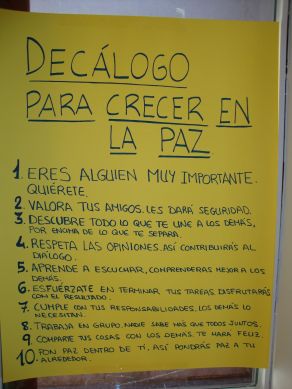 DECÁLOGO
PARA CRECER EN
LA PAZ
1. ERES ALGUIEN MUY IMPORTANTE.
QUIÉRETE.
2. VALORA TUS AMIGOS. LES DARÁ SEGURIDAD.
3. DESCUBRE TODO LO QUE TE UNE A LOS DEMÁS,
POR ENCIMA DE LO QUE TE SEPARA
4. RESPETA LAS OPINIONES. ASÍ CONTRIBUIRÁS AL
DIÁLOGO.
5. APRENDE A ESCUCHAR, COMPRENDERAS MEJOR A LOS
DEMÁS.
6. ESFUÉRZATE EN TERMINAR TUS TAREAS, DISFRUTARÁS
CON EL RESULTADO.
7. CUMPLE CON TUS RESPONSABILIDADES. LOS DEMÁS LO
NECESITAN.
8. TRABAJA EN GRUPO. NADIE SABE MÁS QUE TODOS JUNTOS.
9. COMPARTE TUS COSAS CON LOS DEMÁS. TE HARÁ FELIZ.
10. PON PAZ DENTRO DE TÍ, ASÍ PONDRÁS PAZ A TU
ALREDEDOR.